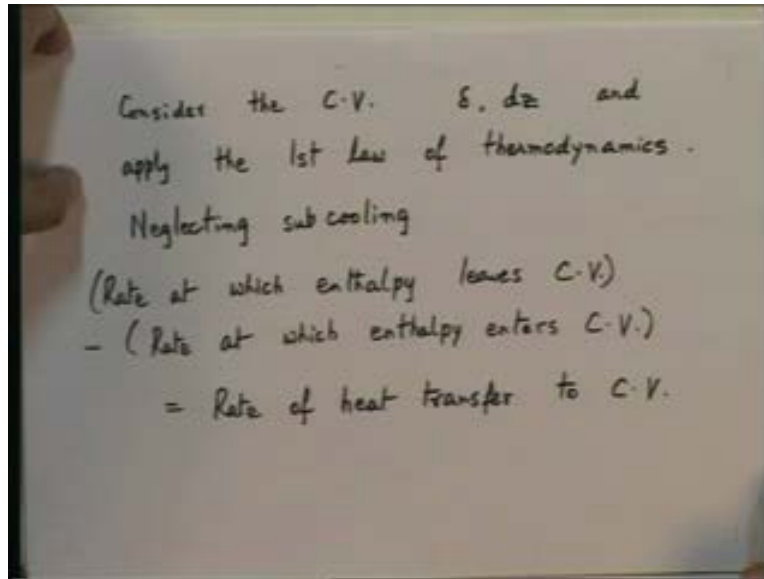 Consider the C.V. δ. dz and
apply the 1st Law of thermodynamics.
Neglecting sub cooling
(Rate at which enthalpy leaves C.V.)
- (Rate at which enthalpy enters C.V.)
= Rate of heat transfer to C.V.